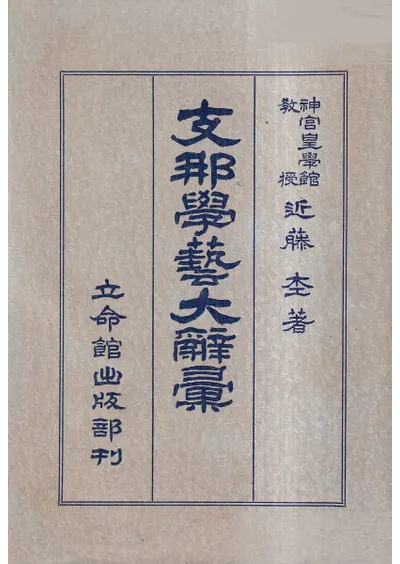 神宮皇學館教授 近藤 杢 著
支那學藝大辭彙
立命館出版部刊